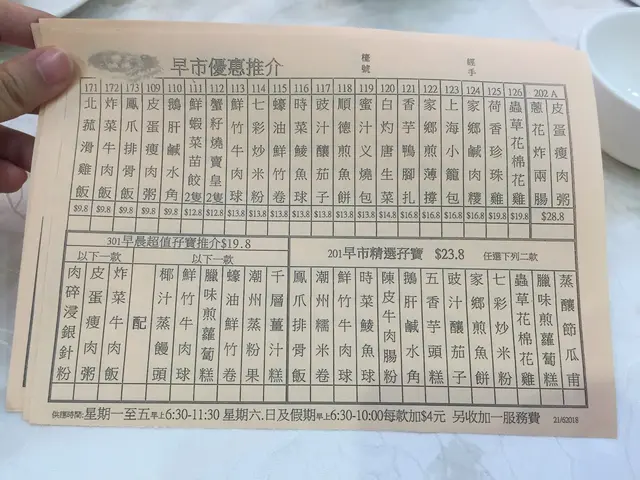 早市優惠推介
檯號
經手
171 北菰滑雞飯 $9.8
172 炸菜牛肉飯 $9.8
173 鳳爪排骨飯 $9.8
109 皮蛋瘦肉粥 $9.8
110 鵝肝鹹水角 $9.8
111 鮮蝦菜苗餃2隻 $12.8
112 蟹籽燒賣皇2隻 $12.8
113 鮮竹牛肉球 $13.8
114 七彩炒米粉 $13.8
115 蠔油鮮竹卷 $13.8
116 時菜鯪魚球 $13.8
117 豉汁釀茄子 $13.8
118 順德煎魚餅 $13.8
119 蜜汁义燒包 $13.8
120 白灼唐生菜 $13.8
121 香芋鴨腳扎 $16.8
122 家鄉煎薄撐 $16.8
123 上海小籠包 $16.8
124 家鄉鹹肉糉 $16.8
125 荷香珍珠雞 $19.8
126 蟲草花棉花雞 $19.8
202 A 蔥花炸兩腸 皮蛋瘦肉粥 $28.8
301早晨超值孖寶推介$19.8
以下一款
肉碎浸銀針粉
皮蛋瘦肉粥
炸菜牛肉飯
配
以下一款
椰汁蒸饅頭
鮮竹牛肉球
臘味煎蘿蔔糕
蠔油鮮竹卷
潮州蒸粉果
千層薑汁糕
201早市精選孖寶 $23.8 任選下列二款
鳳爪排骨飯
潮州糯米卷
鮮竹牛肉球
時菜鯪魚球
陳皮牛肉腸粉
鵝肝鹹水角
五香芋頭糕
豉汁釀茄子
家鄉煎魚餅
七彩炒米粉
蟲草花棉花雞
臘味煎蘿蔔糕
蒸釀節瓜甫
供應時間:星期一至五早上6:30-11:30 星期六.日及假期早上6:30-10:00每款加$4元 另收加一服務費 21/62018